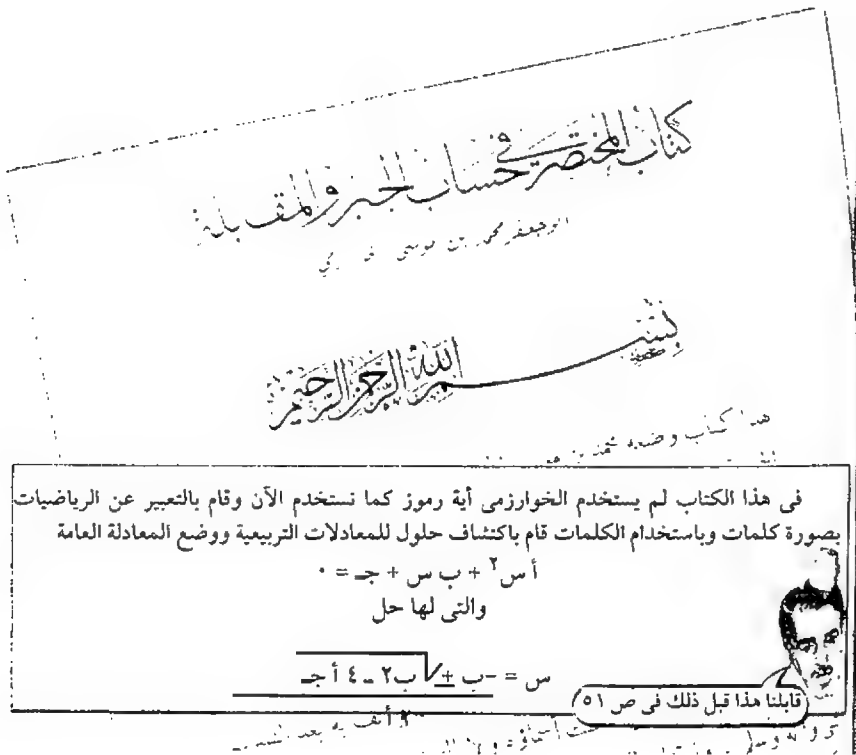 كتاب المختصر في حساب الجبر والمقابلة
ابو جعفر محمد بن موسى
بسم الله الرحمن الرحيم
هذا كتاب وضعه محمد بن
فى هذا الكتاب لم يستخدم الخوارزمى أية رموز كما نستخدم الآن وقام بالتعبير عن الرياضيات
بصورة كلمات وباستخدام الكلمات قام باكتشاف حلول للمعادلات التربيعية ووضع المعادلة العامة
أ س٢ + ب س + جـ = ٠
والتى لها حل
س = -ب ± √ب٢ - ٤ أ جـ
٢ أ
قابلنا هذا قبل ذلك فى ص ٥١